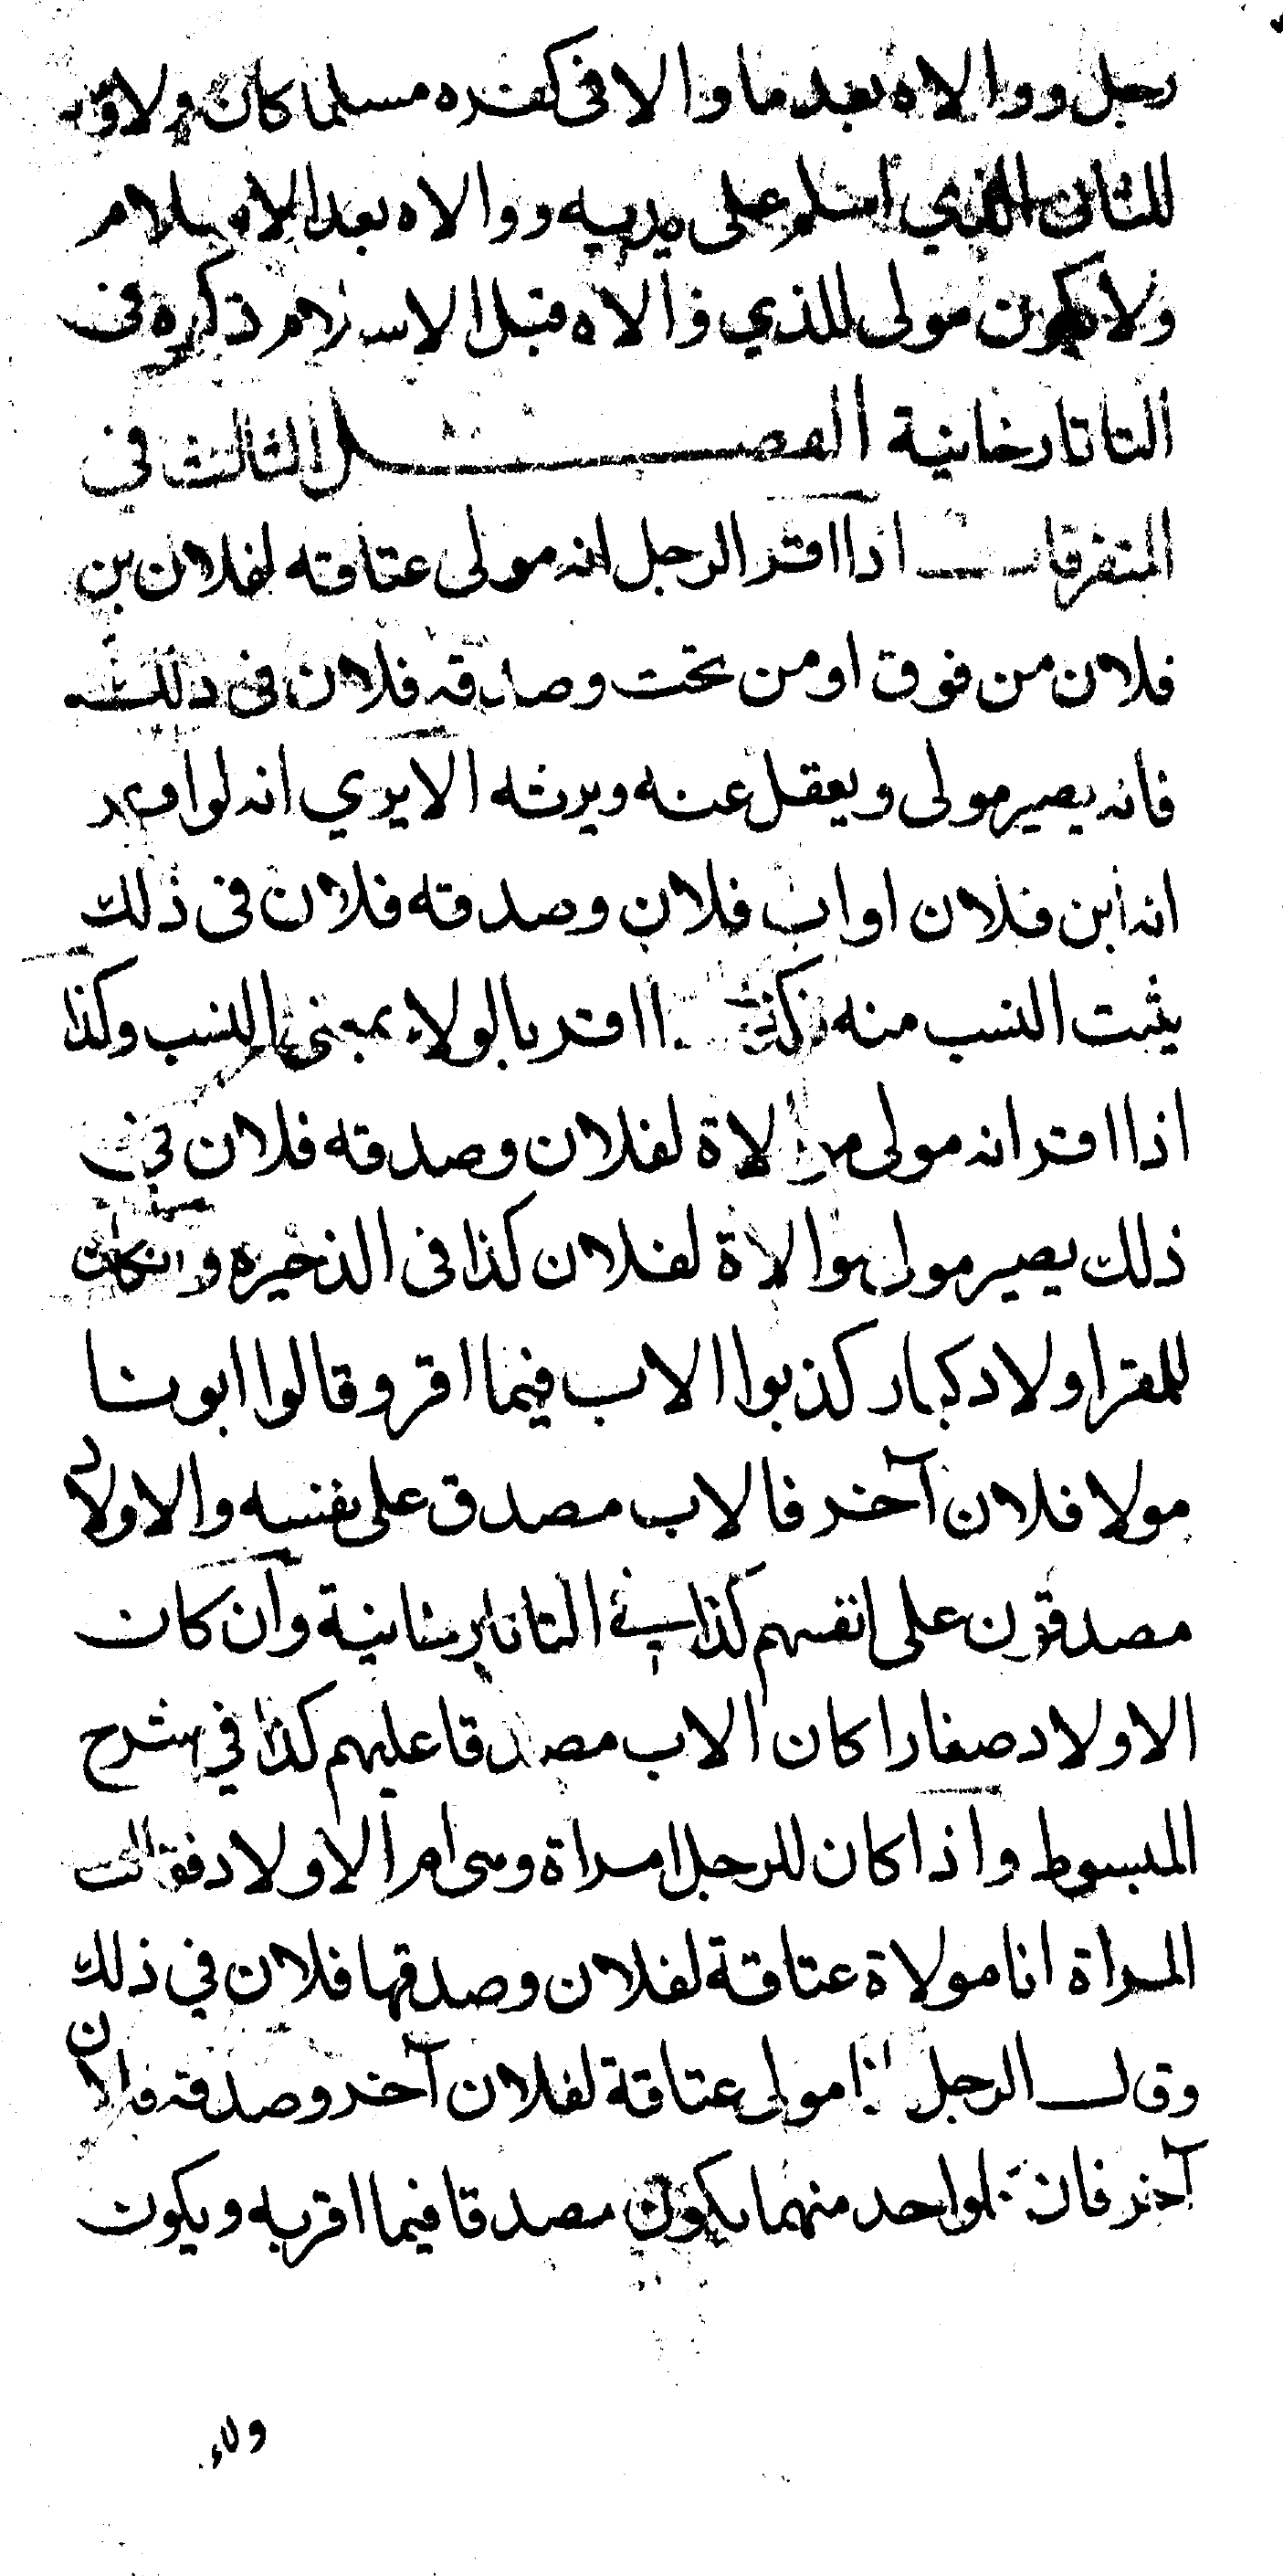 رجل ووالاه بعد ما والا فى كفره مسلما كان ولاؤه
للثانى الذي اسلم على يديه ووالاه بعد الاسلام
ولا يكون مولى للذي والاه قبل الاسلام ذكره فى
التاتارخانية الفصل الثالث في
المتفرقات اذا اقر الرجل انه مولى عتاقه لفلان بن
فلان من فوق او من تحت وصدقه فلان فى ذلك
فانه يصير مولى ويعقل عنه ويرثه الا يري انه لو اقر
انه ابن فلان او اب فلان وصدقه فلان فى ذلك
يثبت النسب منه اقر بالولاء بمعنى النسب وكذا
اذا اقر انه مولى موالاة لفلان وصدقه فلان في
ذلك يصير مولى موالاة لفلان كذا فى الذخيره وان كان
للمقر اولاد كبار كذبوا الاب فيما اقر وقالوا ابونا
مولا فلان آخر فالاب مصدق على نفسه والاولاد
مصدقون على انفسهم كذا في التاتارخانية وان كان
الاولاد صغارا كان الاب مصدقا عليهم كذا في شرح
المبسوط واذا كان للرجل امراة وهى ام الاولاد فقالت
المراة انا مولاة عتاقة لفلان وصدقها فلان في ذلك
وقال الرجل انا مولى عتاقة لفلان آخر وصدقه فلان
آخر فان لواحد منهما يكون مصدقا فيما اقر به ويكون
ولاء